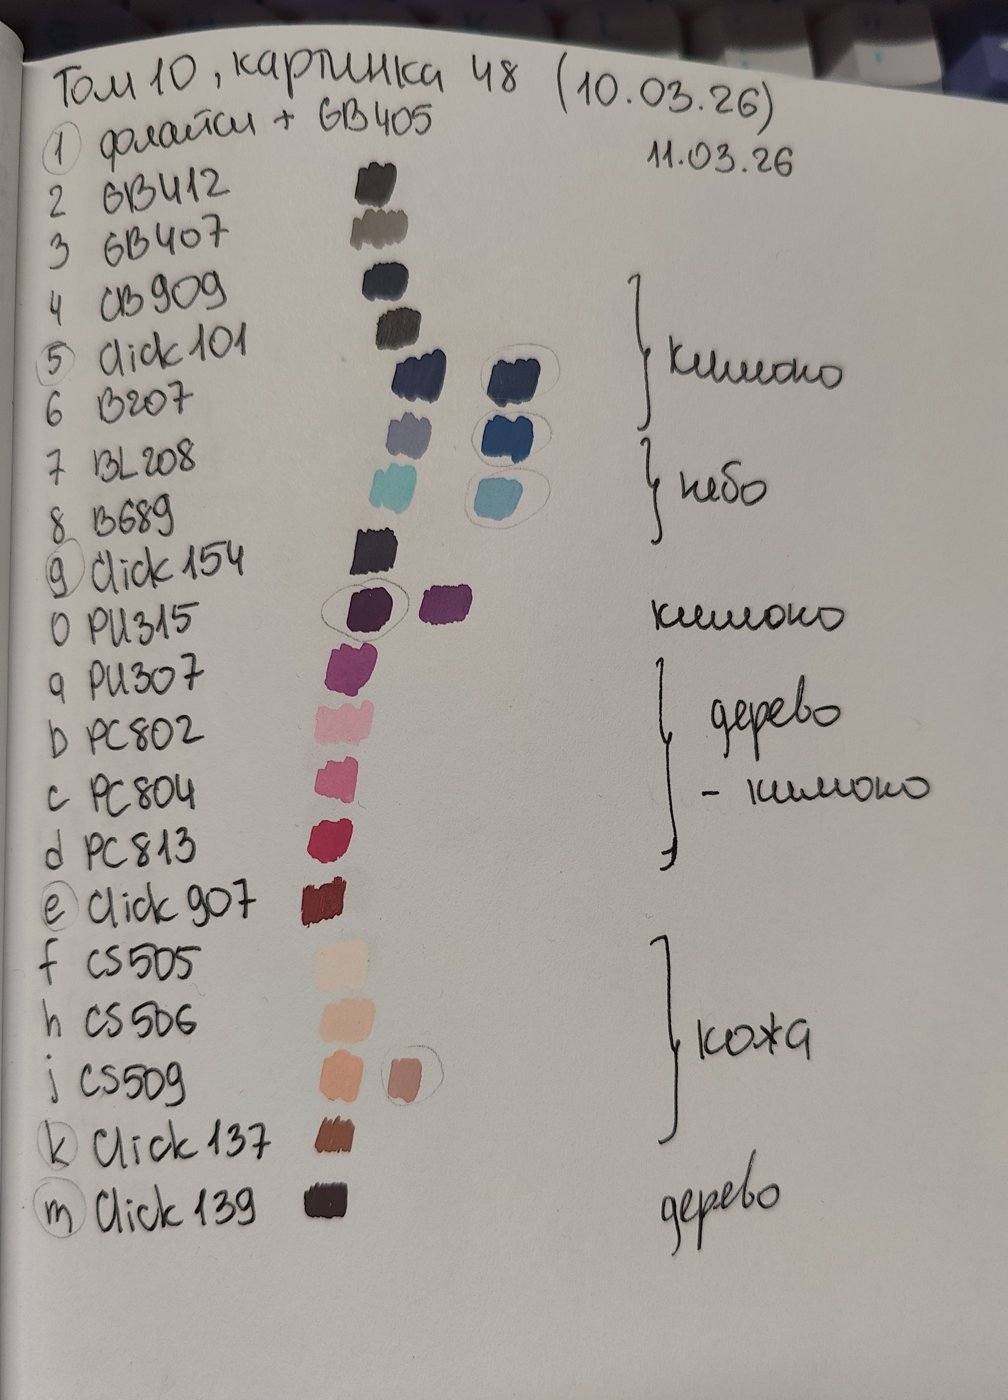 Том 10, картинка 48 (10.03.26)
11.03.26
1 флайси + GB405
2 GB412
3 GB407
4 CB909
5 Click 101
6 B207
7 BL208
8 B689
9 Click 154
0 PU315
a PU307
b PC802
c PC804
d PC813
e Click 907
f CS505
h CS506
j CS509
k Click 137
m Click 139
кимоно
небо
кимоно
дерево
- кимоно
кожа
дерево